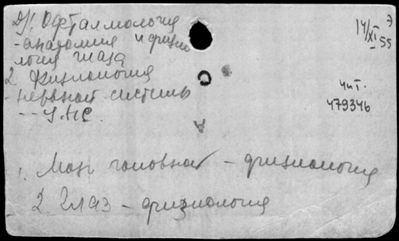 1. Офталмология
- анатомия и физио
логия глаза
2. Физиология
- нервной системы
-- У.МС.
14/XI - 55
Э
чит.
479346
1. Мозг головной - физиология
2. Глаз - физиология